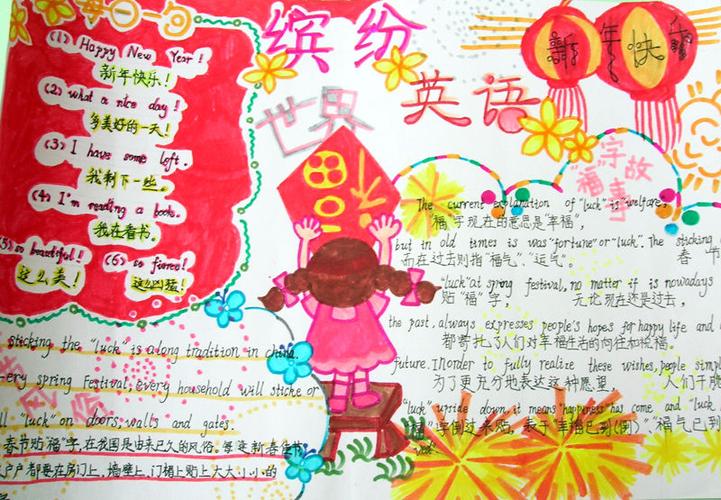 每日一句
(1) Happy New Year!
新年快乐!
(2) what a nice day!
多美好的一天!
(3) I have some left.
我剩下一些。
(4) I'm reading a book.
我在看书。
(5) so beautiful!
这么美!
(6) so fierce!
这么凶猛!
缤纷
世界
英语
新年快乐
福
"福"字故事
The current explanation of "luck" is "welfare,
"福"字现在的意思是"幸福",
but in old times is was "fortune" or "luck". The sticking
而在过去则指"福气"、"运气"。 春节
"luck" at spring festival, no matter if is nowadays
贴"福"字, 无论现在还是过去,
the past, always expresses people's hopes for happy life and
都寄托了人们对幸福生活的向往和祝福。
future. In order to fully realize these wishes, people simpl
为了更充分地表达这种愿望, 人们干脆
"luck" upside down, it means "happiness has come and "luck
字倒过来贴, 表示"幸福已到(倒)"、"福气已到
sticking the "luck" is along tradition in china.
ery spring Festival, every household will sticke or
"luck" on doors, walls and gates.
春节贴"福"字,在我国是由来已久的风俗。每逢新春佳节,
户户都要在房门上,墙壁上,门楣上贴上大大小小的